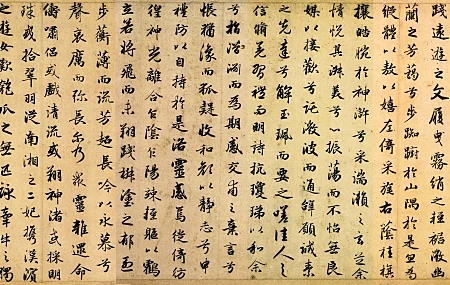 踐遠遊之文履曳霧綃之輕裾微幽
蘭之芳藹兮步踟躕於山隅於是忽焉
縱體以敖以嬉左倚采旄右蔭桂旗
攘皓腕於神滸兮采湍瀨之玄芝余
情悅其淑美兮心振蕩而不怡無良
媒以接歡兮託微波而通辭願誠素
之先達兮解玉珮而要之嗟佳人之
信脩羌習禮而明詩抗瓊珶以和余
兮指潛淵而為期感交甫之棄言兮
悵猶豫而狐疑收和顏以靜志兮申
禮防以自持於是洛靈感焉徙倚彷
徨神光離合乍陰乍陽竦輕軀以鶴
立若將飛而未翔踐椒塗之郁烈
步蘅薄而流芳超長吟以永慕兮
聲哀厲而彌長爾乃衆靈雜遝命
儔嘯侶或戲清流或翔神渚或採明
珠或拾翠羽從南湘之二妃攜漢濱
之遊女歎匏瓜之無匹詠牽牛之獨